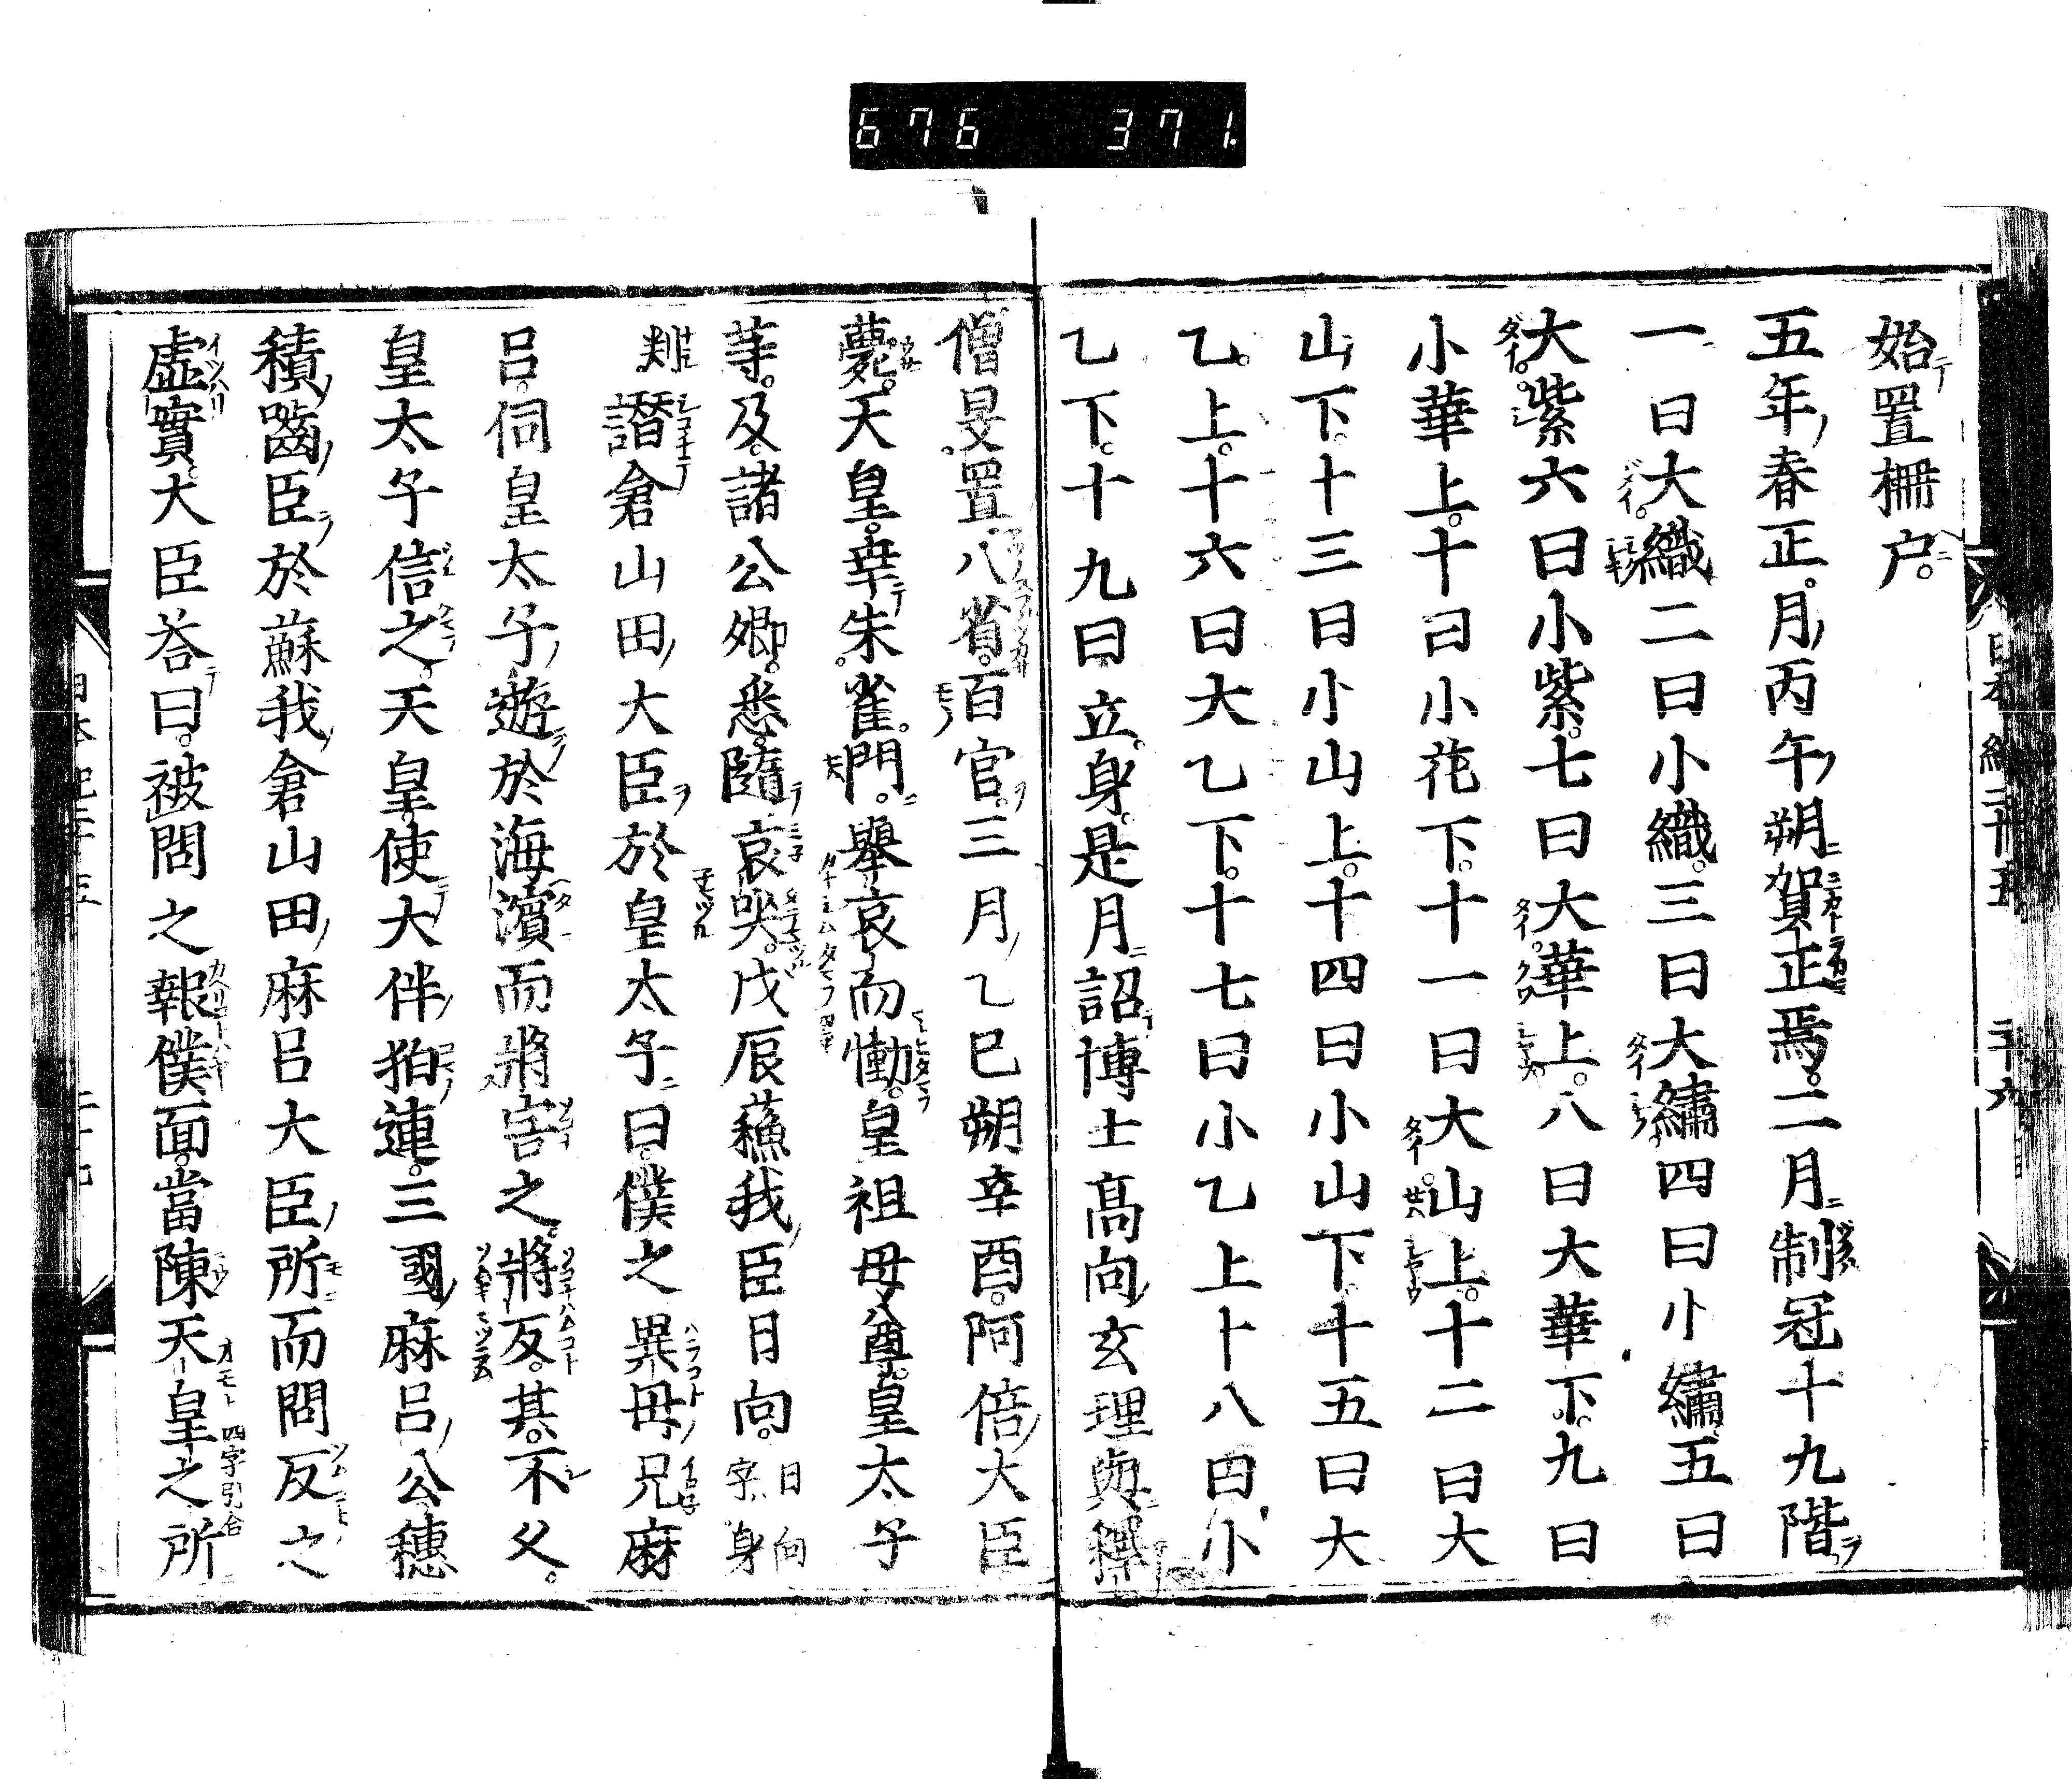 676 371.
始置柵戸
五年春正月丙午朔賀正焉二月制冠十九階
一曰大織二曰小織三曰大繡四曰小繡五曰
大紫六曰小紫七曰大華上八曰大華下九曰
小華上十曰小花下十一曰大山上十二曰大
山下十三曰小山上十四曰小山下十五曰大
乙上十六曰大乙下十七曰小乙上十八曰小
乙下十九曰立身是月詔博士高向玄理與釋
僧旻置八省百官三月乙巳朔辛酉阿倍大臣
薨天皇幸朱雀門舉哀而慟皇祖母尊皇太子
等及諸公卿悉隨哀哭戊辰蘓我臣日向 日向字身
㓨 譖倉山田大臣於皇太子曰僕之異母兄麻
呂伺皇太子遊於海濱而將害之將反其不久
皇太子信之天皇使大伴狛連三國麻呂公穗
積嚙臣於蘇我倉山田麻呂大臣所而問反之
虛實大臣荅曰被問之報僕面當陳天皇之所